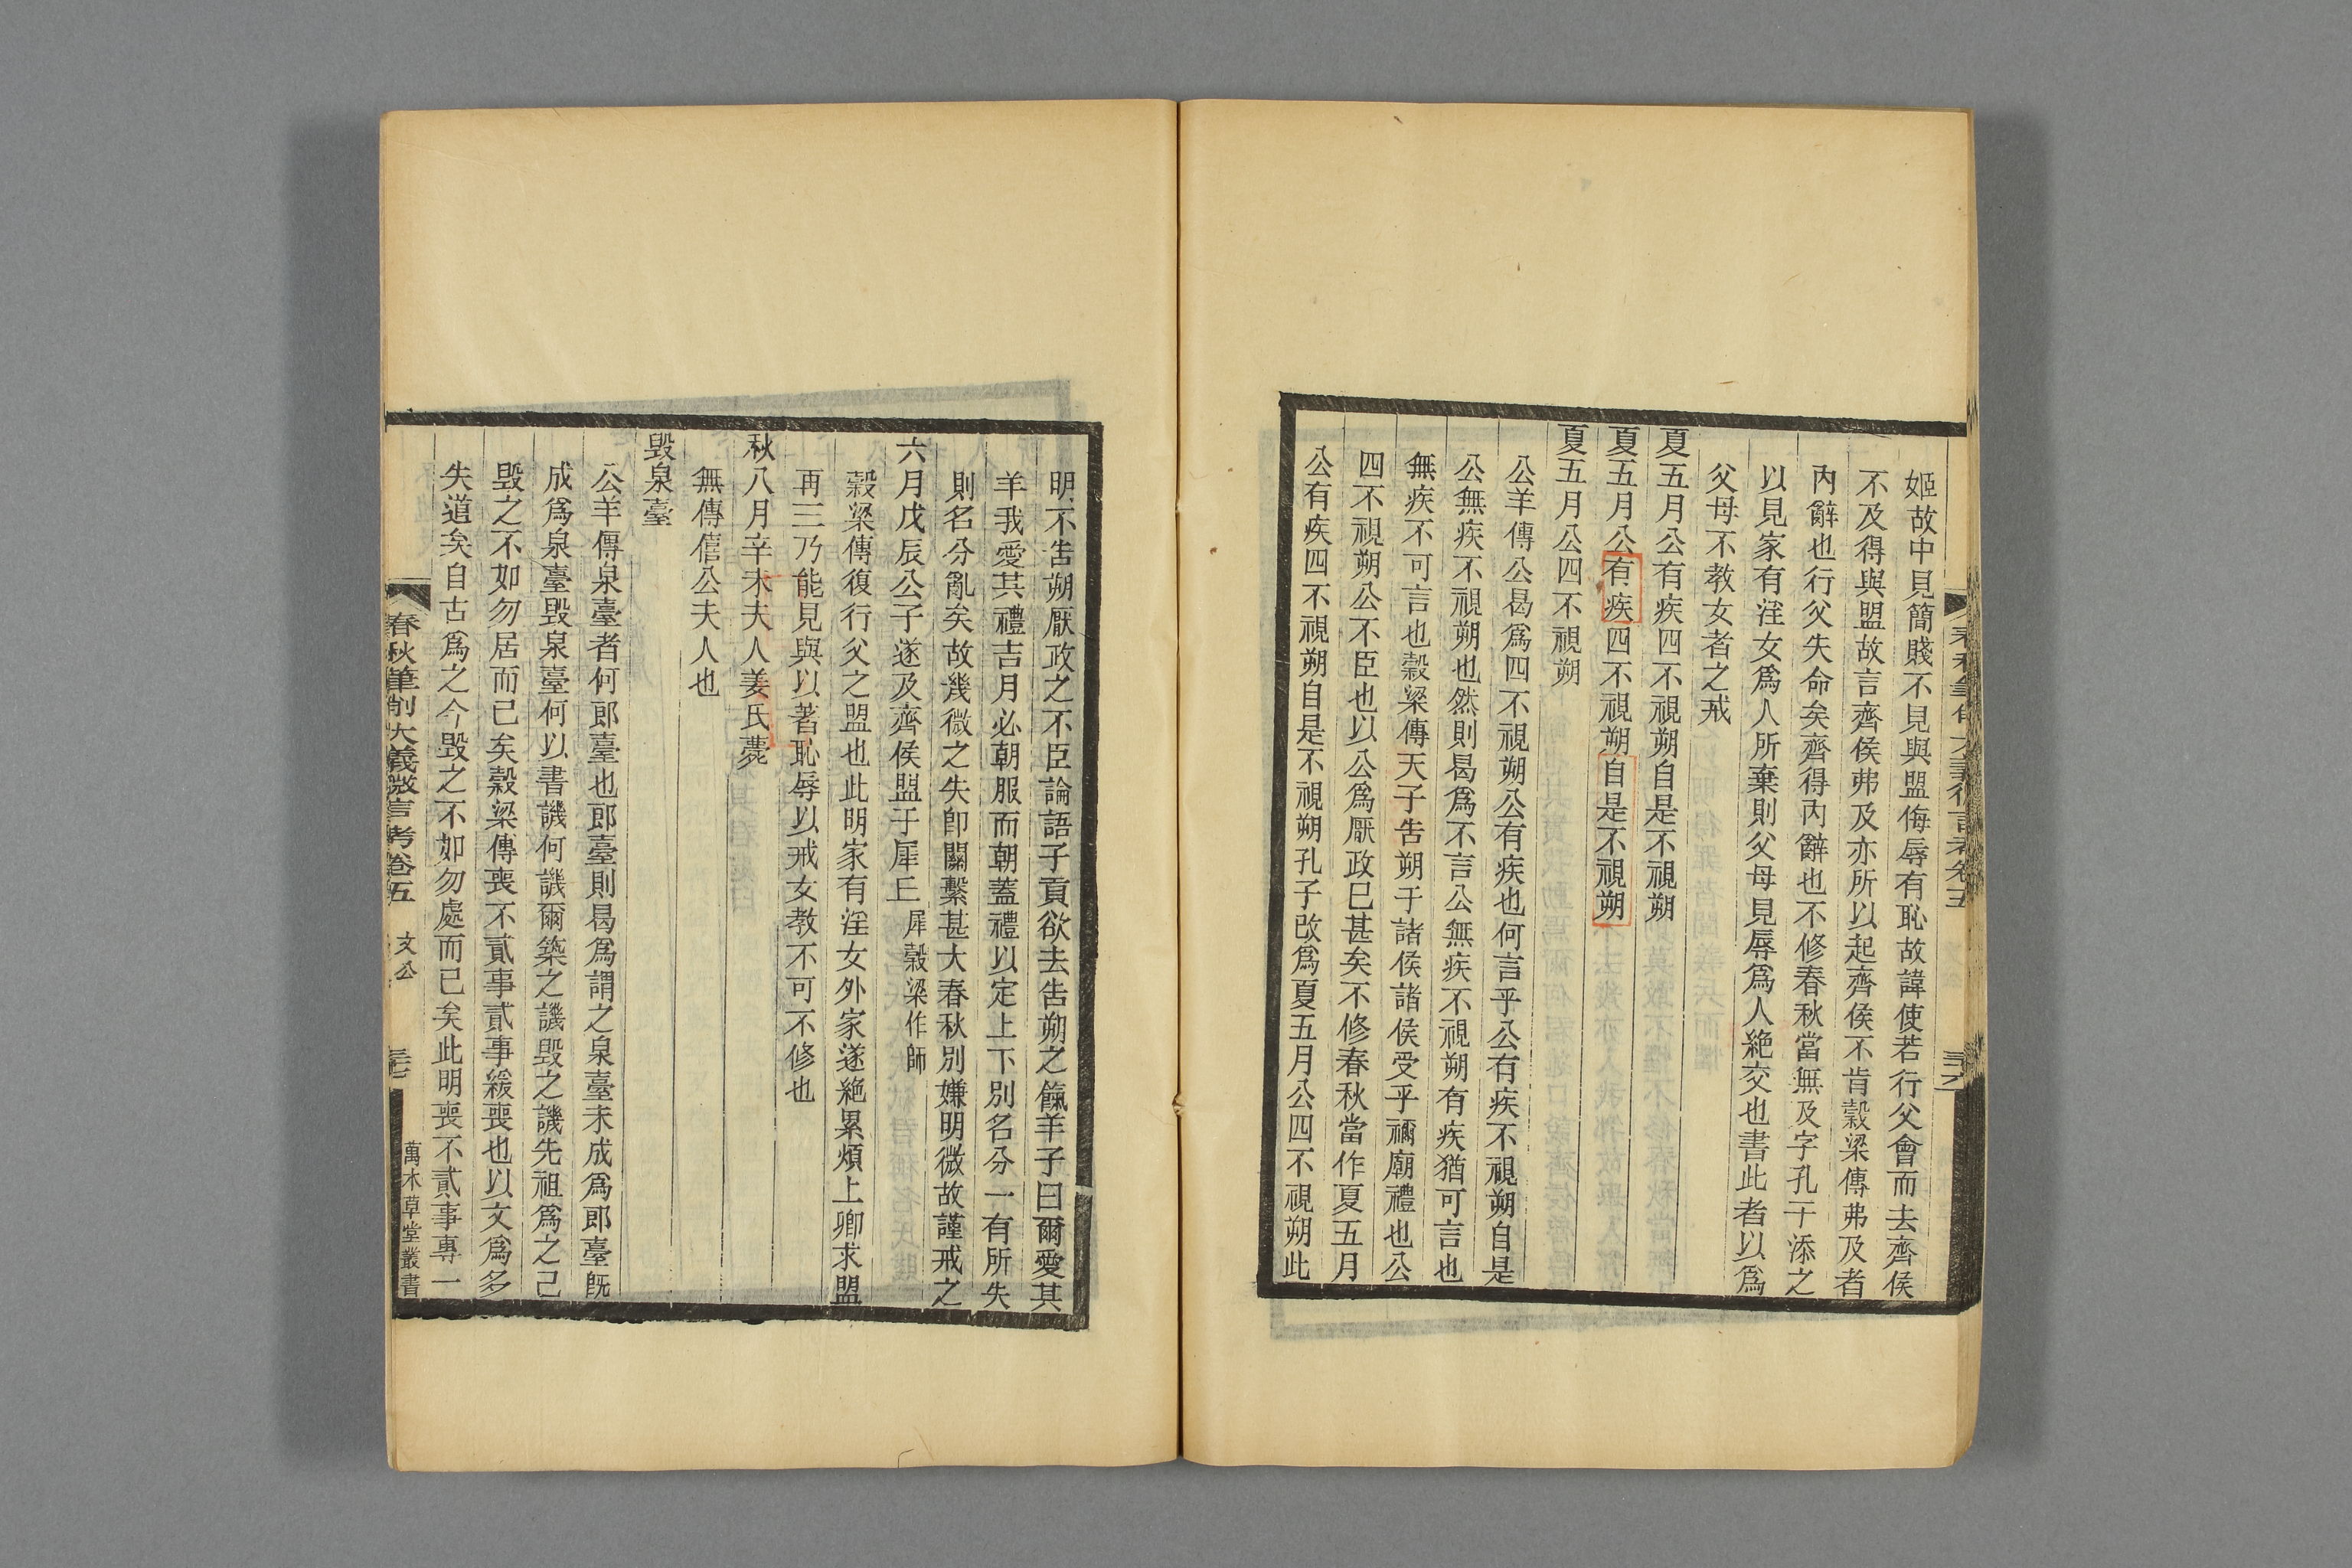 姬故中見簡賤不見與盟侮辱有恥故諱使若行父會而去齊侯
不及得與盟故言齊侯弗及亦所以起齊侯不肯穀梁傳弗及者
內辭也行父失命矣齊得內辭也不修春秋當無及字孔子添之
以見家有淫女爲人所棄則父母見辱爲人絕交也書此者以爲
父母不教女者之戒
夏五月公有疾四不視朔自是不視朔
夏五月公有疾四不視朔自是不視朔
夏五月公四不視朔
公羊傳公曷爲四不視朔公有疾也何言乎公有疾不視朔自是
公無疾不視朔也然則曷爲不言公無疾不視朔有疾猶可言也
無疾不可言也穀梁傳天子告朔于諸侯諸侯受乎禰廟禮也公
四不視朔公不臣也以公爲厭政已甚矣不修春秋當作夏五月
公有疾四不視朔自是不視朔孔子改爲夏五月公四不視朔此
明不告朔厭政之不臣論語子貢欲去告朔之餼羊子曰爾愛其
羊我愛其禮吉月必朝服而朝蓋禮以定上下別名分一有所失
則名分亂矣故幾微之失卽關繫甚大春秋別嫌明微故謹戒之
六月戊辰公子遂及齊侯盟于犀丘 犀穀梁作師
穀梁傳復行父之盟也此明家有淫女外家遂絕累煩上卿求盟
再三乃能見與以著恥辱以戒女教不可不修也
秋八月辛未夫人姜氏薨
無傳僖公夫人也
毀泉臺
公羊傳泉臺者何郎臺也郎臺則曷爲謂之泉臺未成爲郎臺旣
成爲泉臺毀泉臺何以書譏何譏爾築之譏毀之譏先祖爲之己
毀之不如勿居而已矣穀梁傳喪不貳事貳事緩喪也以文爲多
失道矣自古爲之今毀之不如勿處而已矣此明喪不貳事專一
春秋筆削大義微言考卷五 文公 三七 萬木草堂叢書